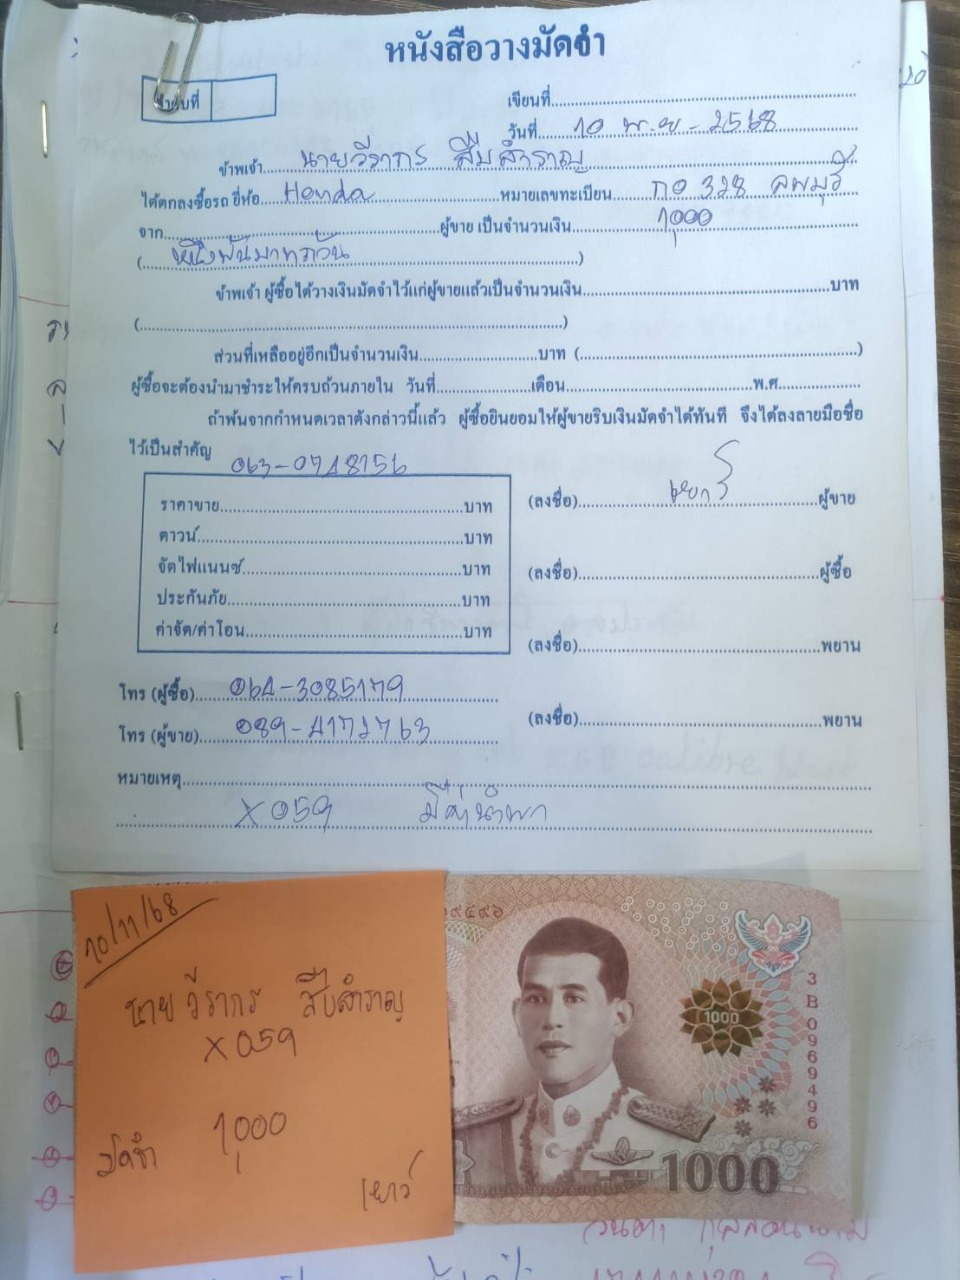 หนังสือวางมัดจำ
ลำดับที่
เขียนที่
วันที่ 10 พ.ย - 2568
ข้าพเจ้า นายวีรากร สืบสำราญ
ได้ตกลงซื้อรถ ยี่ห้อ Honda หมายเลขทะเบียน กอ 328 ลพบุรี
จาก ผู้ขาย เป็นจำนวนเงิน 1,000
( หนึ่งพันบาทถ้วน )
ข้าพเจ้า ผู้ซื้อได้วางเงินมัดจำไว้แก่ผู้ขายแล้วเป็นจำนวนเงิน บาท
( )
ส่วนที่เหลืออยู่อีกเป็นจำนวนเงิน บาท ( )
ผู้ซื้อจะต้องนำมาชำระให้ครบถ้วนภายใน วันที่ เดือน พ.ศ.
ถ้าพ้นจากกำหนดเวลาดังกล่าวนี้แล้ว ผู้ซื้อยินยอมให้ผู้ขายริบเงินมัดจำได้ทันที จึงได้ลงลายมือชื่อ
ไว้เป็นสำคัญ
063-0748156
ราคาขาย บาท
ดาวน์ บาท
จัดไฟแนนซ์ บาท
ประกันภัย บาท
ค่าจัด/ค่าโอน บาท
(ลงชื่อ) ผู้ขาย
(ลงชื่อ) ผู้ซื้อ
(ลงชื่อ) พยาน
(ลงชื่อ) พยาน
โทร (ผู้ซื้อ) 064-3085179
โทร (ผู้ขาย) 089-4171763
หมายเหตุ
X 059
10/11/68
นาย วีรากร สืบสำราญ
X 059
มัดจำ 1,000
เยาว์
1000
3 B 0969496
1000